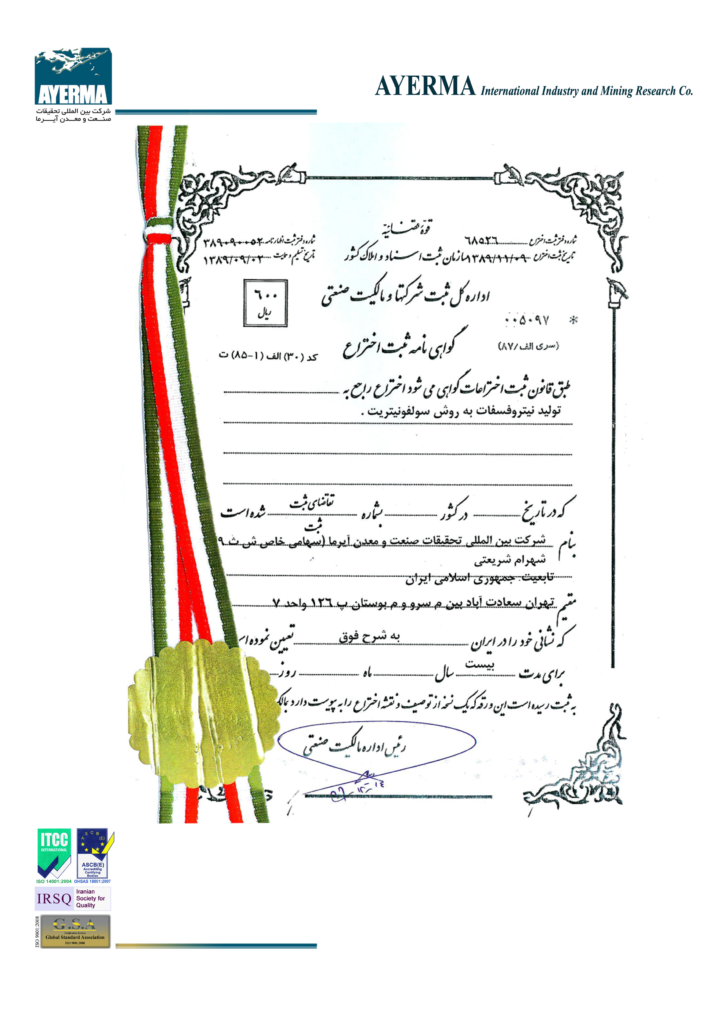 AYERMA
شرکت بین المللی تحقیقات
صنـعت و معـدن آیـرما
AYERMA International Industry and Mining Research Co.
قوهٔ قضائیه
شماره دفتر ثبت اختراع ۶۸۵۲۶
شماره دفتر ثبت اظهارنامه ۳۸۹۰۹۰۰۵۲
تاریخ ثبت اختراع ۱۳۸۹/۱۱/۰۹
سازمان ثبت اسناد و املاک کشور
تاریخ تسلیم ۱۳۸۹/۰۹/۰۲
اداره کل ثبت شرکتها و مالکیت صنعتی
۶۰۰
ریال
* ۰۰۵۰۹۷
(سری الف/۸۷)
گواهی نامه ثبت اختراع
کد (۳۰) الف (۱-۸۵) ت
طبق قانون ثبت اختراعات گواهی می شود اختراع راجع به
تولید نیتروفسفات به روش سولفونیتریت .
که در تاریخ در کشور بشماره تقاضای ثبت شده است
ثبت
بنام شرکت بین المللی تحقیقات صنعت و معدن آیرما (سهامی خاص ش ث ۹
شهرام شریعتی
تابعیت: جمهوری اسلامی ایران
مقیم تهران سعادت آباد بین م سرو و م بوستان پ ۱۲۶ واحد ۷
که نشانی خود را در ایران به شرح فوق تعیین نموده اس
برای مدت بیست سال ماه روز
به ثبت رسیده است این ورقه که یک نسخه از توصیف و نقشه اختراع را به پیوست دارد بمالک
رئیس اداره مالکیت صنعتی
ITCC
INTERNATIONAL
ASCB(E)
Accrediting
Certifying
Bodies
ISO 14001:2004 OHSAS 18001:2007
IRSQ Iranian Society for Quality
ISO 9001:2008
G.S.A
Global Standard Association
ISO 9001:2008